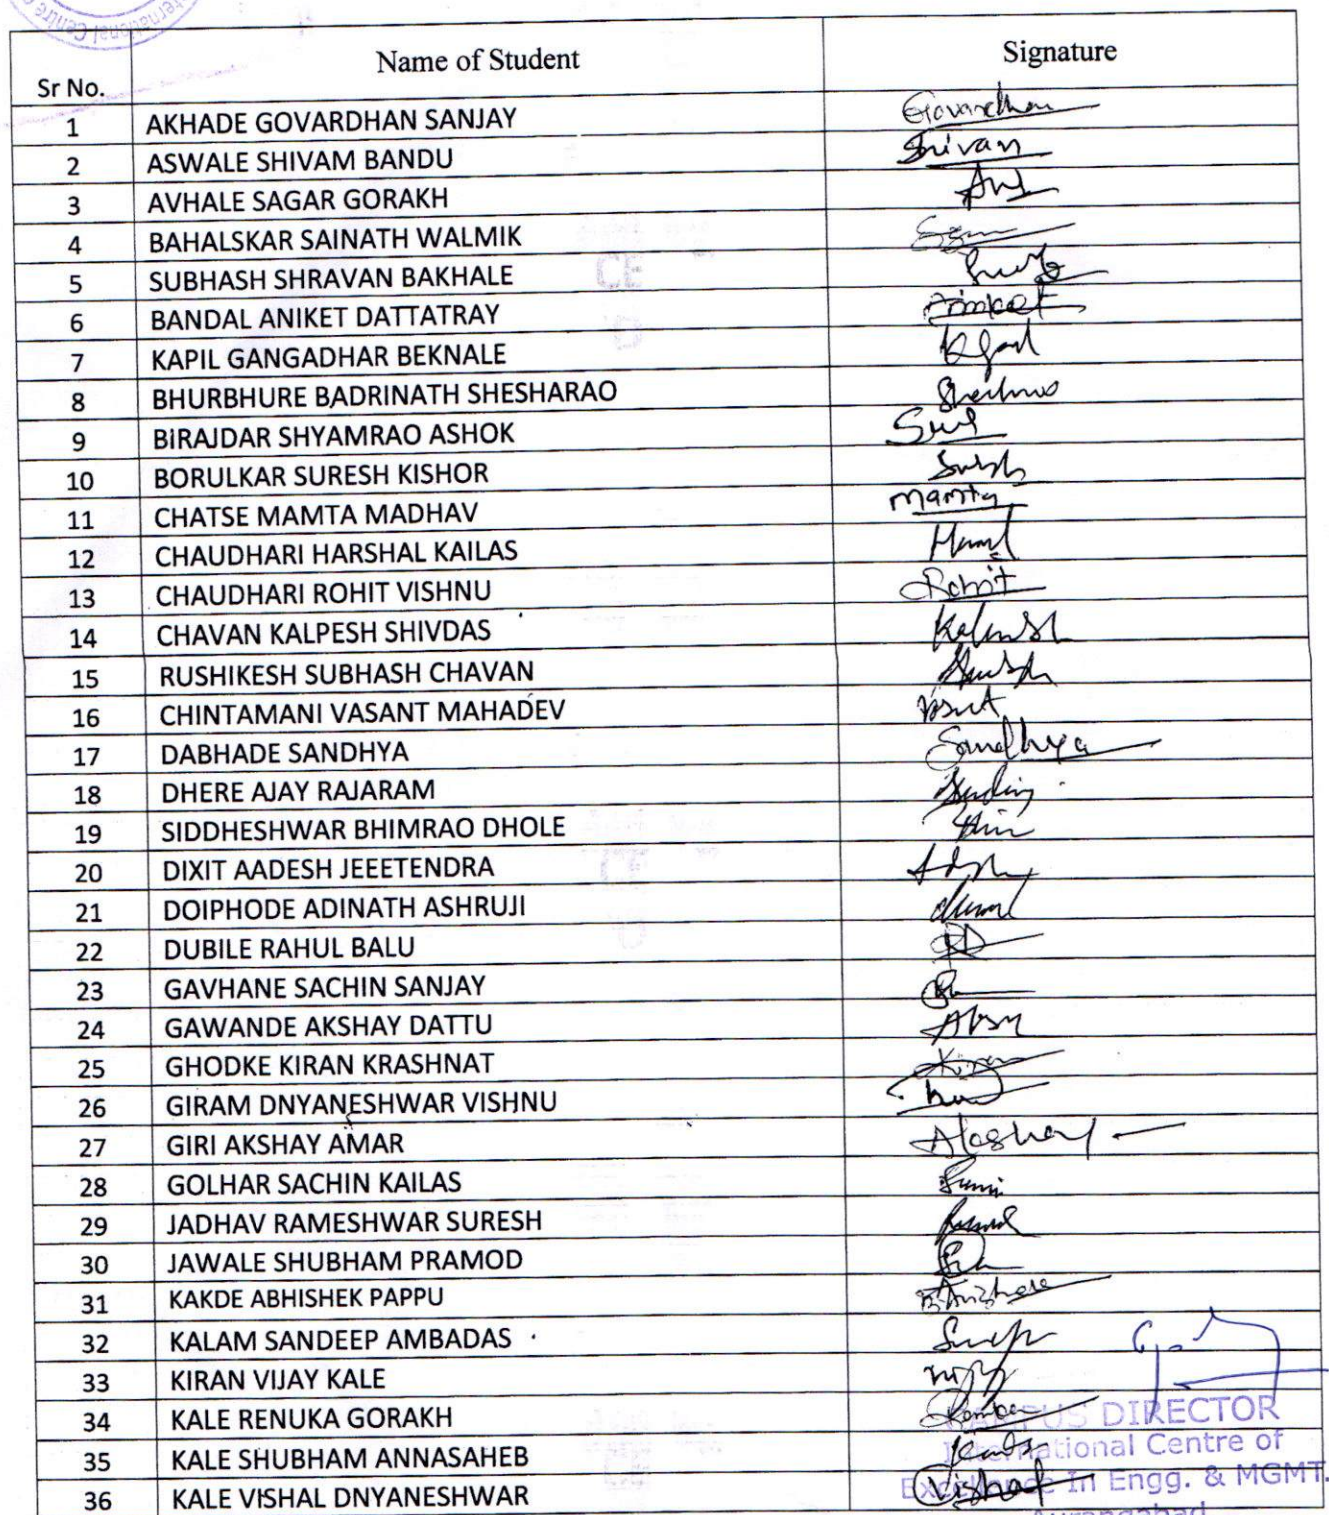 International Centre
Sr No. Name of Student Signature
1 AKHADE GOVARDHAN SANJAY Govardhan
2 ASWALE SHIVAM BANDU Shivam
3 AVHALE SAGAR GORAKH
4 BAHALSKAR SAINATH WALMIK
5 SUBHASH SHRAVAN BAKHALE
6 BANDAL ANIKET DATTATRAY Aniket
7 KAPIL GANGADHAR BEKNALE
8 BHURBHURE BADRINATH SHESHARAO
9 BIRAJDAR SHYAMRAO ASHOK
10 BORULKAR SURESH KISHOR
11 CHATSE MAMTA MADHAV Mamta
12 CHAUDHARI HARSHAL KAILAS
13 CHAUDHARI ROHIT VISHNU Rohit
14 CHAVAN KALPESH SHIVDAS
15 RUSHIKESH SUBHASH CHAVAN
16 CHINTAMANI VASANT MAHADEV
17 DABHADE SANDHYA Sandhya
18 DHERE AJAY RAJARAM
19 SIDDHESHWAR BHIMRAO DHOLE
20 DIXIT AADESH JEEETENDRA
21 DOIPHODE ADINATH ASHRUJI
22 DUBILE RAHUL BALU
23 GAVHANE SACHIN SANJAY
24 GAWANDE AKSHAY DATTU
25 GHODKE KIRAN KRASHNAT Kiran
26 GIRAM DNYANESHWAR VISHNU
27 GIRI AKSHAY AMAR Akshay
28 GOLHAR SACHIN KAILAS
29 JADHAV RAMESHWAR SURESH
30 JAWALE SHUBHAM PRAMOD
31 KAKDE ABHISHEK PAPPU
32 KALAM SANDEEP AMBADAS
33 KIRAN VIJAY KALE
34 KALE RENUKA GORAKH
CAMPUS DIRECTOR
35 KALE SHUBHAM ANNASAHEB
International Centre of
36 KALE VISHAL DNYANESHWAR Vishal
Excellence In Engg. & MGMT.
Aurangabad